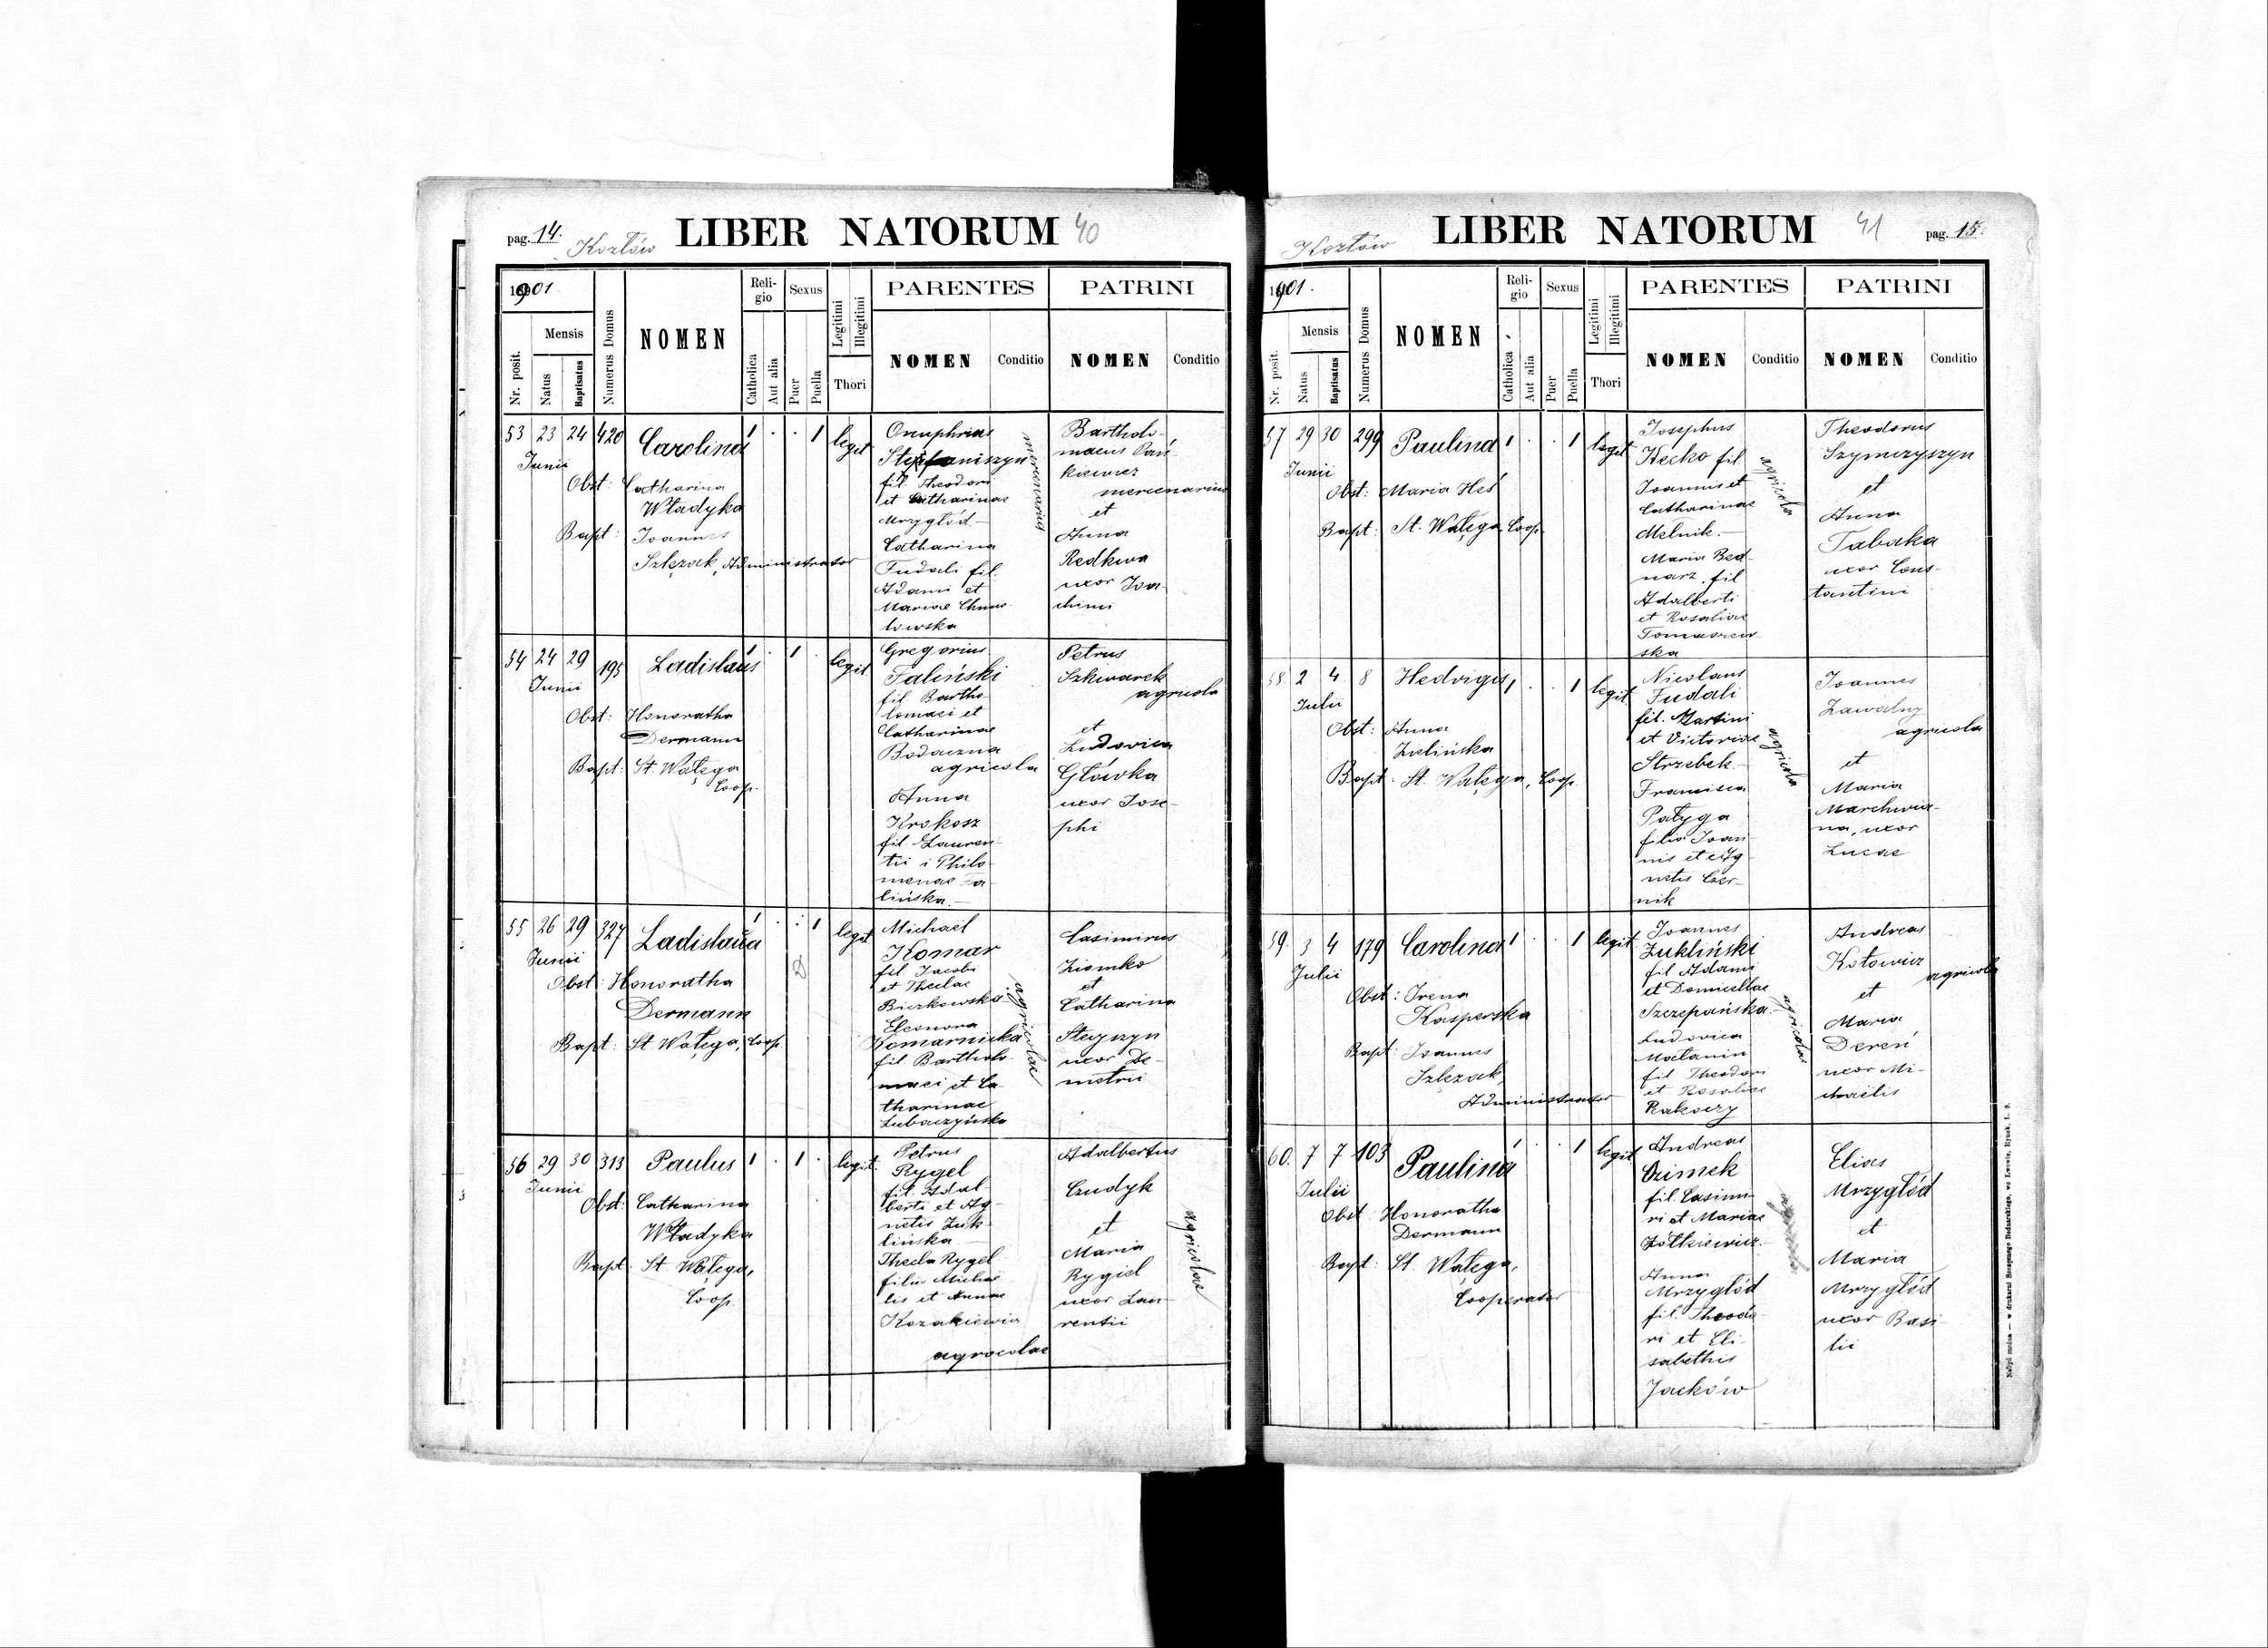 pag. 14. Kozłów LIBER NATORUM 40
1901.
Nr. posit.
Mensis
Natus
Baptisatus
Numerus Domus
NOMEN
Religio
Catholica
Aut alia
Sexus
Puer
Puella
Legitimi
Illegitimi
Thori
PARENTES
NOMEN
Conditio
PATRINI
NOMEN
Conditio
53 23 24 420 Carolina 1 . . 1 legit
Junii
Obst: Catharina
Władyka
Bapt: Joannes
Szlęzak, Administrator
Onuphrius
Stefaniszyn
fil. Theodori
et Catharinae
Mrzygłód
Catharina
Fudali fil.
Adami et
Mariae Chmie-
lowska
mercenarius
Bartholo-
maeus Pań-
kiewicz
mercenarius
et
Anna
Redkwa
uxor Joa-
chimi
54 24 29 195 Ladislaus 1 . 1 . legit
Junii
Obst: Honoratha
Dermann
Bapt: St. Wałęga
Coop.
Gregorius
Faliński
fil Bartho
lomaei et
Catharinae
Bodaczna
agricola
Anna
Krokosz
fil Lauren
tii i Philo-
menae Fa-
lińska.
Petrus
Szkwarek
agricola
et
Ludovica
Główka
uxor Jose-
phi
55 26 29 327 Ladislava 1 . . 1 legit
Junii
Obst: Honoratha
Dermann
Bapt: St Wałęga, Coop.
Michael
Komar
fil Jacobi
et Theclae
Bieżkowska
Eleonora
Komarnicka
fil Bartholo-
maei et Ca
tharinae
Łubaczyńska
agricolae
Casimirus
Ziomko
et
Catharina
Stepczyn
uxor De-
metrii
56 29 30 313 Paulus 1 . 1 . legit.
Junii
Obst: Catharina
Władyka
Bapt: St Wałęga,
Coop.
Petrus
Rygel
fil. Adal-
berti et Ag-
netis Żuk-
lińska
Thecla Rygel
filia Michae
lis et Annae
Kozakiewicz
agrocolae
Adalbertus
Czudyk
et
Maria
Rygiel
uxor Lau-
rentii
agricolae
Kozłów LIBER NATORUM 41 pag. 15.
1901.
Nr. posit.
Mensis
Natus
Baptisatus
Numerus Domus
NOMEN
Religio
Catholica
Aut alia
Sexus
Puer
Puella
Legitimi
Illegitimi
Thori
PARENTES
NOMEN
Conditio
PATRINI
NOMEN
Conditio
57 29 30 299 Paulina 1 . . 1 legit
Junii
Obst: Maria Heś
Bapt: St. Wałęga, Coop.
Josephus
Kecko fil
Joannis et
Catharinae
Melnik.
Maria Bed-
narz, fil
Adalberti
et Rosaliae
Tomaszew
ska
agricola
Theodorus
Szymczyszyn
et
Anna
Tabaka
uxor Cons-
tantini
58. 2 4 8 Hedvigis 1 . . 1 legit
Julii
Obst: Anna
Zielińska
Bapt: St. Wałęga, Coop.
Nicolaus
Fudali
fil. Martini
et Victoriae
Strzebek.
Francisca
Patyga
filia Joan-
nis et Ag-
netis Czer-
nik
agricola
Joannes
Zawalny
agricola
et
Maria
Marchwia-
na, uxor
Lucae
59. 3 4 179 Carolina 1 . . 1 legit
Julii
Obst: Irena
Kasperska
Bapt: Joannes
Szlęzak,
Administrator
Joannes
Żukliński
fil Adami
et Domicellae
Szczepańska.
Ludovica
Małanin
fil Theodori
et Rosaliae
Rakoczy
agricolae
Andreas
Kotowicz
agricola
et
Maria
Dereń
uxor Mi-
chaëlis
60. 7 7 103 Paulina 1 . . 1 legit
Julii
Obst: Honoratha
Dermann
Bapt: St. Wałęga,
Cooperator
Andreas
Ozimek
fil. Casimi-
ri et Mariae
Żółkiewicz.
Anna
Mrzygłód
fil. Theodo-
ri et Eli-
sabethis
Jacków
Elias
Mrzygłód
et
Maria
Mrzygłód
uxor Basi-
lii